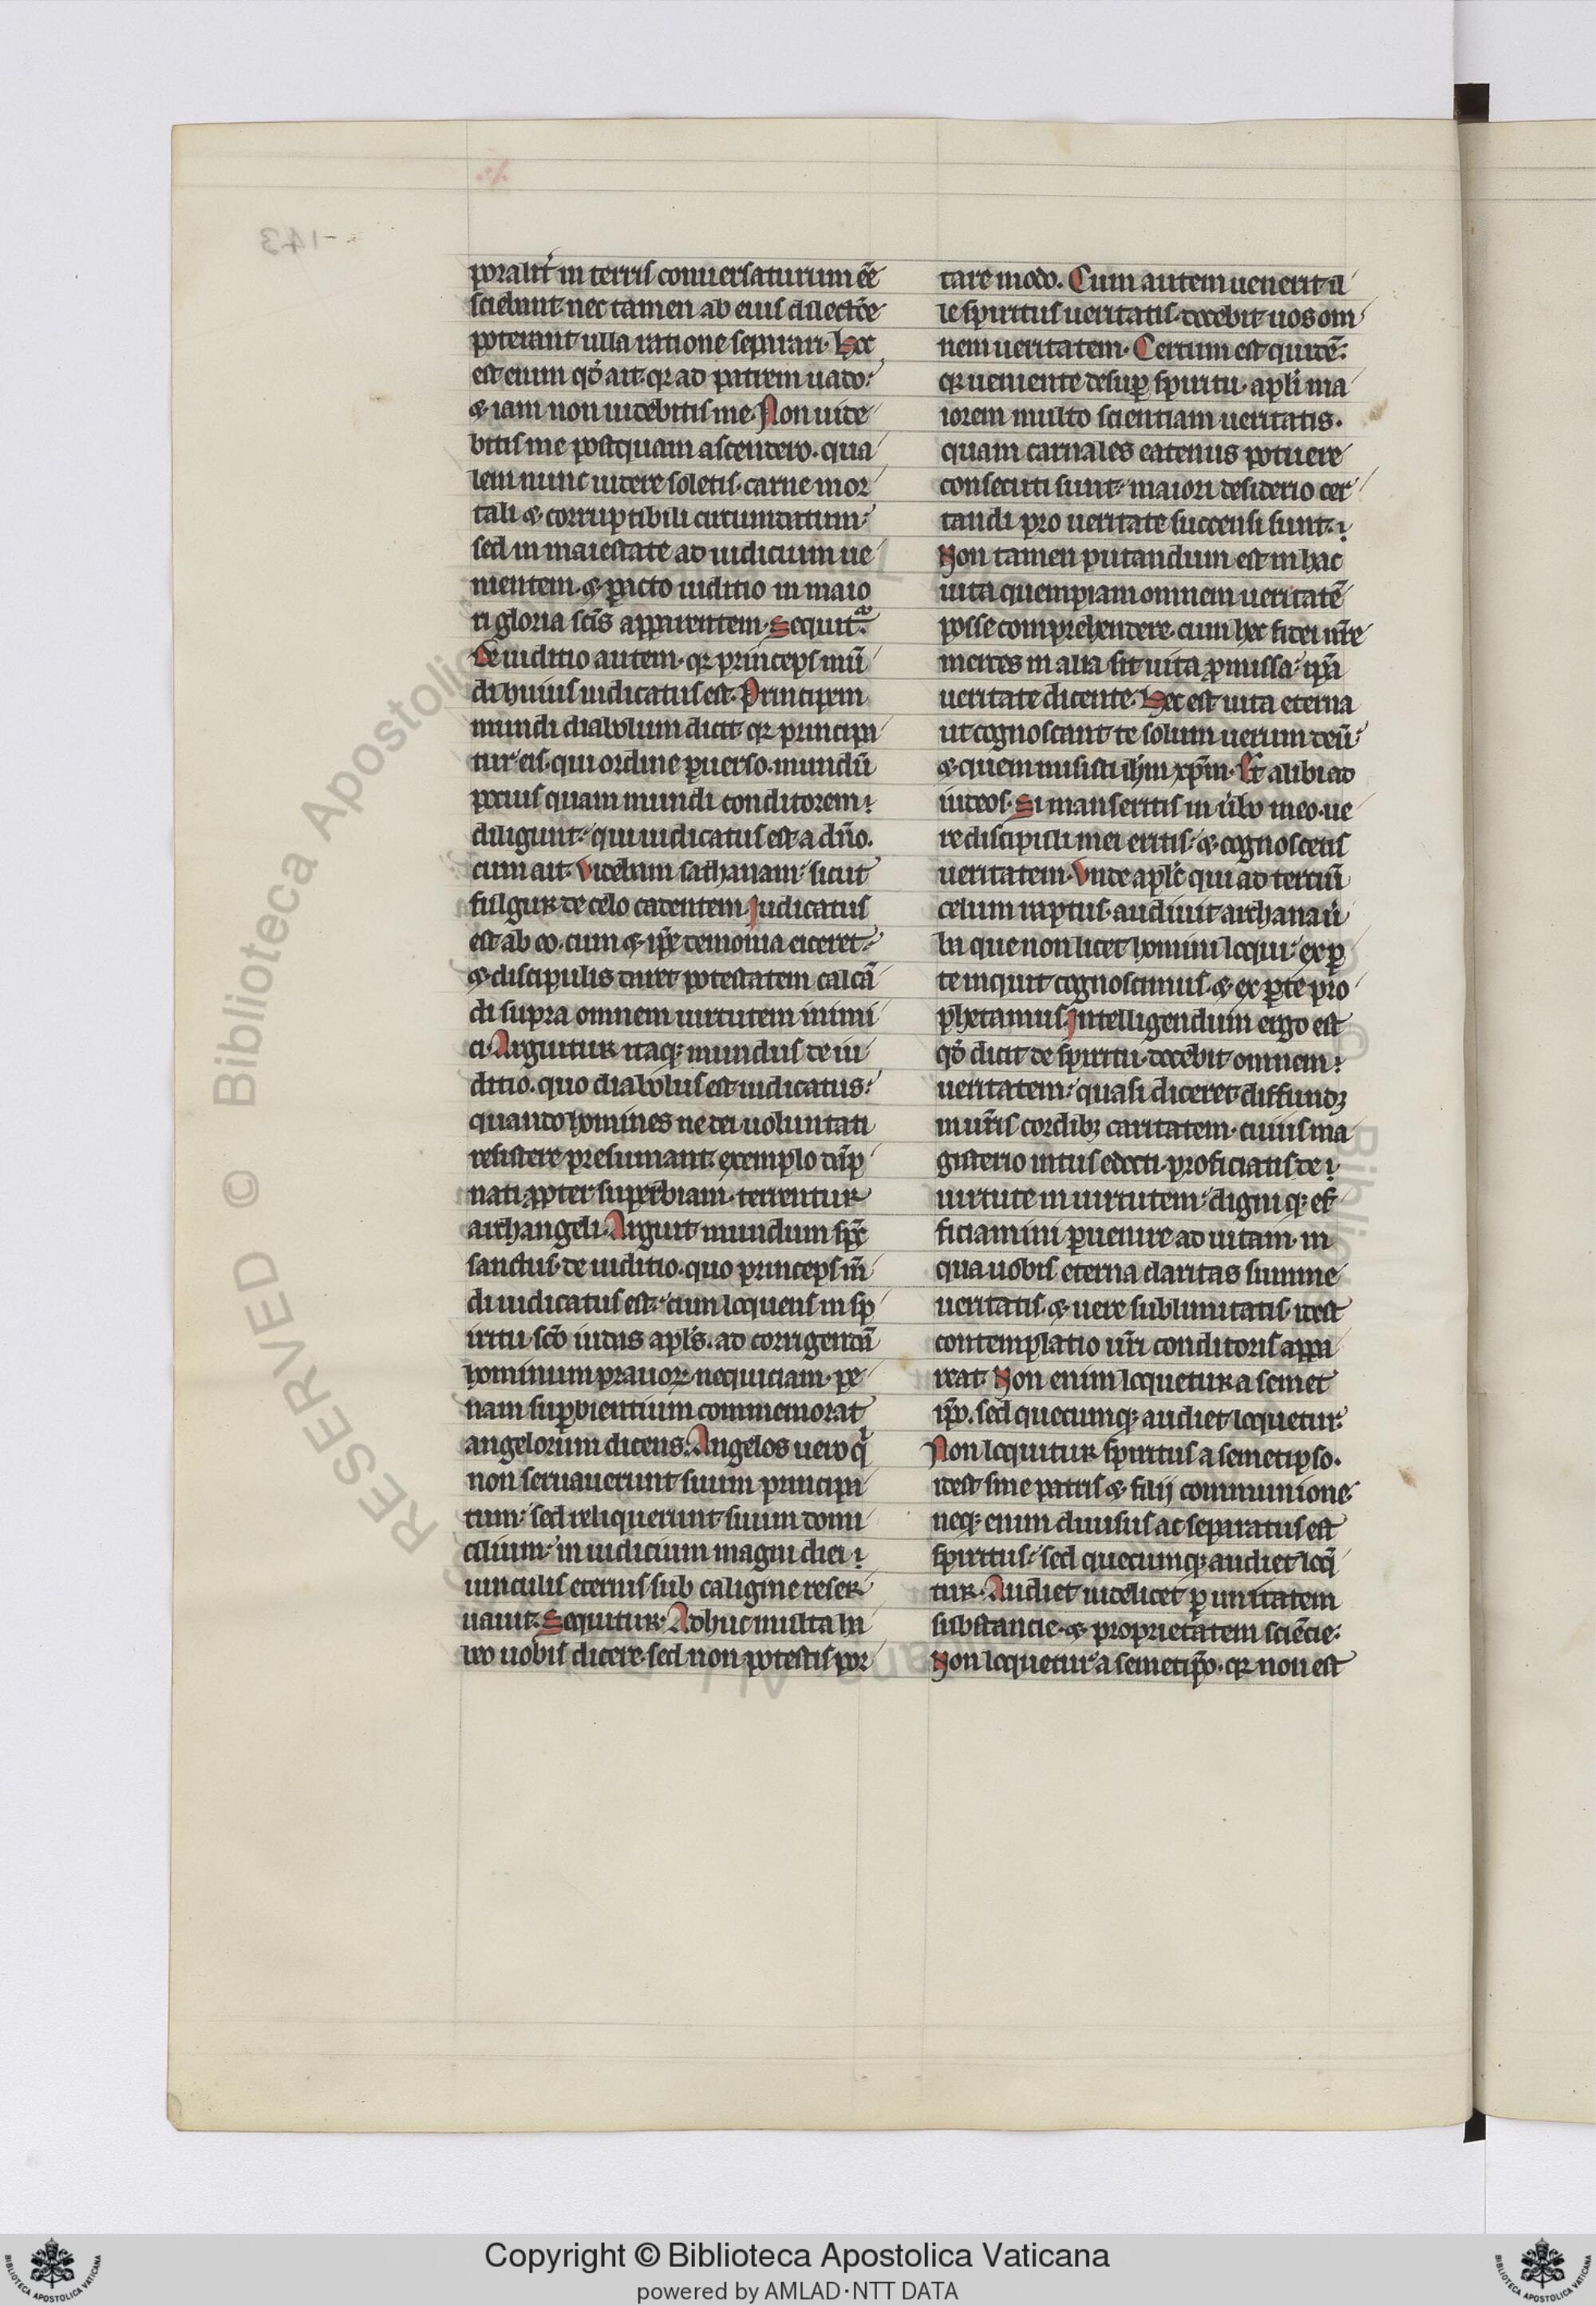 poralit͛ in terris conuersaturum ēē
sciebant nec tamen ab eius dilectōe
poterant ulla ratione separari. Hoc
est enim qđ ait. qꝛ ad patrem uado:
⁊ iam non uidebitis me. Non uide
bitis me postquam ascendero. qua
lem nunc uidere soletis. carne mor
tali ⁊ corruptibili circumdatum:
sed in maiestate ad iudicium ue
nientem. ⁊ ꝑacto iuditio in maio
ri gloria sc̄is apparentem. Sequit᷑.
De iuditio autem. qꝛ princeps mū
di huius iudicatus est. Principem
mundi diabolum dicit. qꝛ principa
tur eis. qui ordine ꝑuerso. mundū
pocius quam mundi conditorem
diligunt. qui iudicatus est a dn̄o.
cum ait. Videbam sathanam: sicut
fulgur de celo cadentem. Iudicatus
est ab eo. cum ⁊ ip̄e demonia eiceret:
⁊ discipulis daret potestatem calcā
di supra omnem uirtutem inimi
ci. Arguitur itaqꝫ mundus de iu
ditio. quo diabolus est iudicatus:
quando homines ne dei uoluntati
resistere presumant. exemplo dāp
nati ꝓpter superbiam. terrentur
archangeli. Arguit mundum sp̄c
sanctus. de iuditio. quo princeps mū
di iudicatus est. cum loquens in sp
iritu sc̄o iudas apl̄s. ad corrigendā
hominum prauoꝝ nequiciam. pe
nam suꝑbientium commemorat
angelorum dicens. Angelos uero qͥ
non seruauerunt suum principa
tum: sed reliquerunt suum domi
cilium: in iudicium magni diei
uinculis eternis sub caligine reser
uauit. Sequitur. Adhuc multa ha
beo uobis dicere. sed non potestis por
tare modo. Cum autem uenerit il
le spiritus ueritatis. docebit uos om
nem ueritatem. Certum est quidē:
qꝛ ueniente desuꝑ spiritu. apl̄i ma
iorem multo scientiam ueritatis.
quam carnales eatenus potuere
consecuti sunt: maiori desiderio cer
tandi pro ueritate succensi sunt.
Non tamen putandum est in hac
uita quempiam omnem ueritatē
posse comprehendere. cum hec fidei nr̄e
merces in alia sit uita ꝓmissa: ip̄a
ueritate dicente. Hec est uita eterna
ut cognoscant te solum uerum deū:
⁊ quem misisti ih̄m xp̄m. Et alibi ad
iudeos. Si manseritis in ūbo meo. ue
re discipuli mei eritis: ⁊ cognoscetis
ueritatem. Vnde apl̄c qui ad terciū
celum raptus. audiuit archana ū
ba que non licet homini loqui: ex ꝑ
te inquit cognoscimus. ⁊ ex ꝑte pro
phetamus. Intelligendum ergo est
qđ dicit de spiritu. docebit omnem
ueritatem: quasi diceret. diffundꝫ
in ur̄is cordibꝫ caritatem. cuius ma
gisterio intus edocti. proficiatis de
uirtute in uirtutem: digni qꝫ ef
ficiamini ꝑuenire ad uitam. in
qua uobis eterna claritas summe
ueritatis. ⁊ uere sublimitatis. idest
contemplatio ur̄i conditoris appa
reat. Non enim loquetur a semet
ip̄o. sed quecumqꝫ audiet loquetur.
Non loquitur spiritus a semetipso.
idest sine patris ⁊ filij communione
neqꝫ enim diuisus ac separatus est
spiritus: sed quecumqꝫ audiet loq̄
tur. Audiet uidelicet ꝑ unitatem
substancie. ⁊ proprietatem sciēcie:
Non loquetur a semetip̄o. qꝛ non est
Copyright © Biblioteca Apostolica Vaticana
powered by AMLAD·NTT DATA